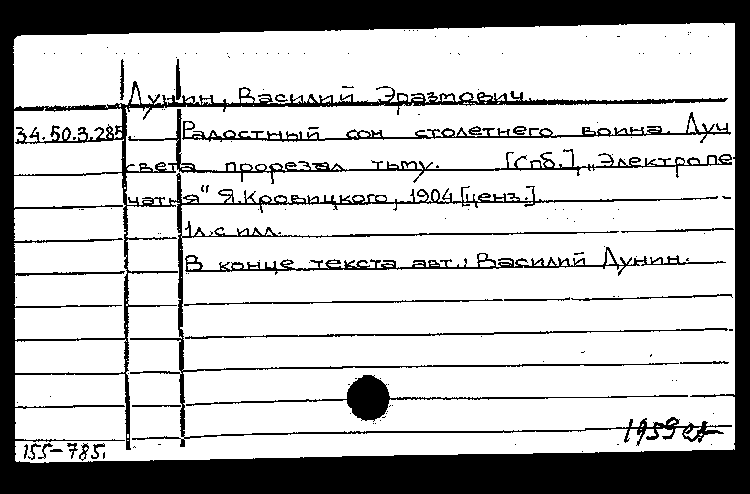 Дунин, Василий Эразмович.
34.50.3.285. Радостный сон столетнего воина. Луч
света прорезал тьму. [Спб.], „Электропе
чатня“ Я.Кровицкого, 1904 [ценз.].
1л. с илл.
В конце текста авт.: Василий Дунин.
1959
155-785.